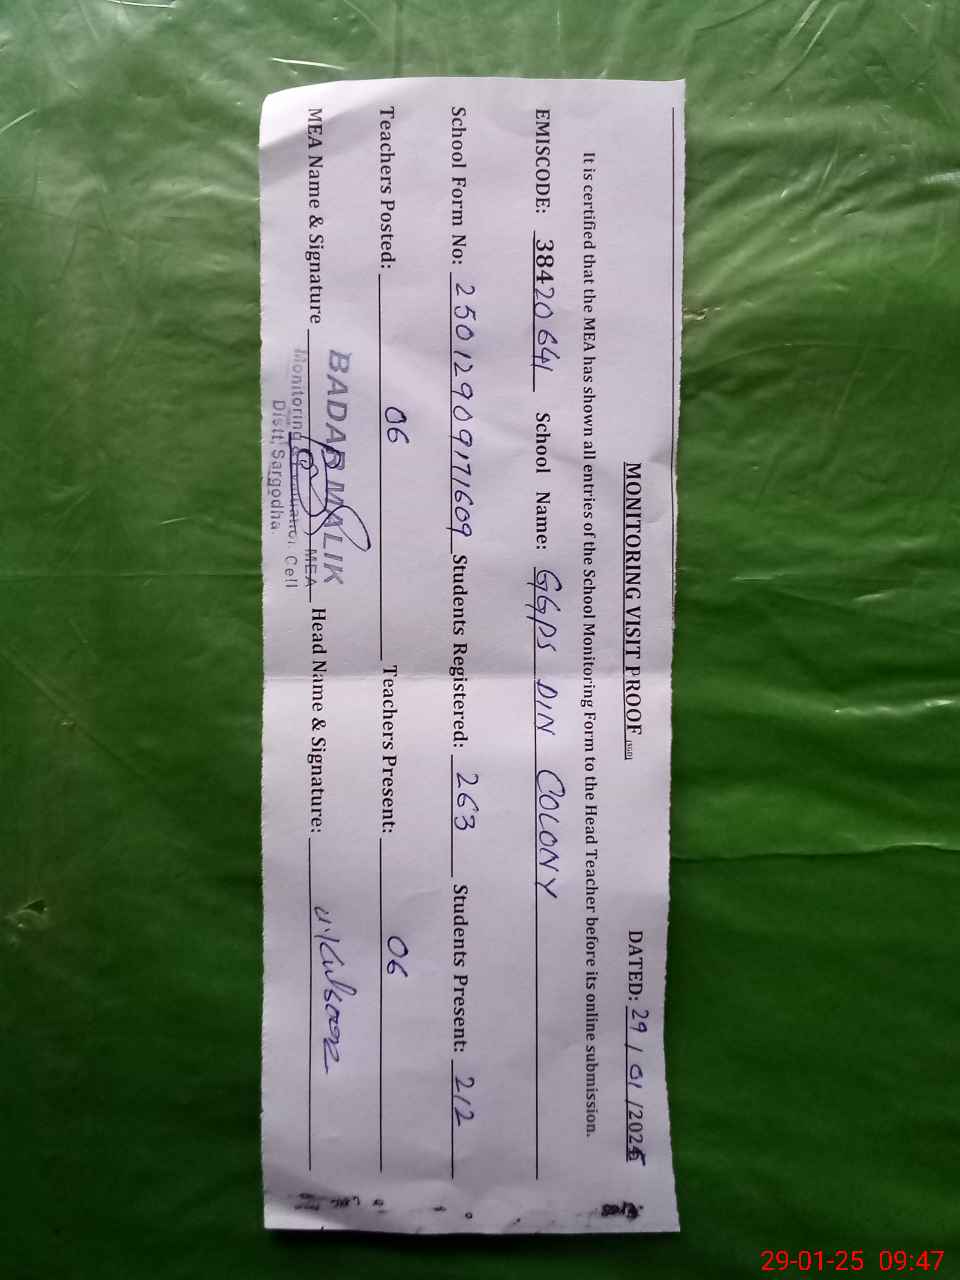 MONITORING VISIT PROOF (SGD) DATED: 29/01/2025
It is certified that the MEA has shown all entries of the School Monitoring Form to the Head Teacher before its online submission.
EMISCODE: 38420641 School Name: GGPS DIN COLONY
School Form No: 250129091711609 Students Registered: 263 Students Present: 212
Teachers Posted: 06 Teachers Present: 06
BADAR MALIK
MEA Name & Signature MEA Head Name & Signature:
Monitoring & Evaluation Cell
Distt; Sargodha
29-01-25 09:47